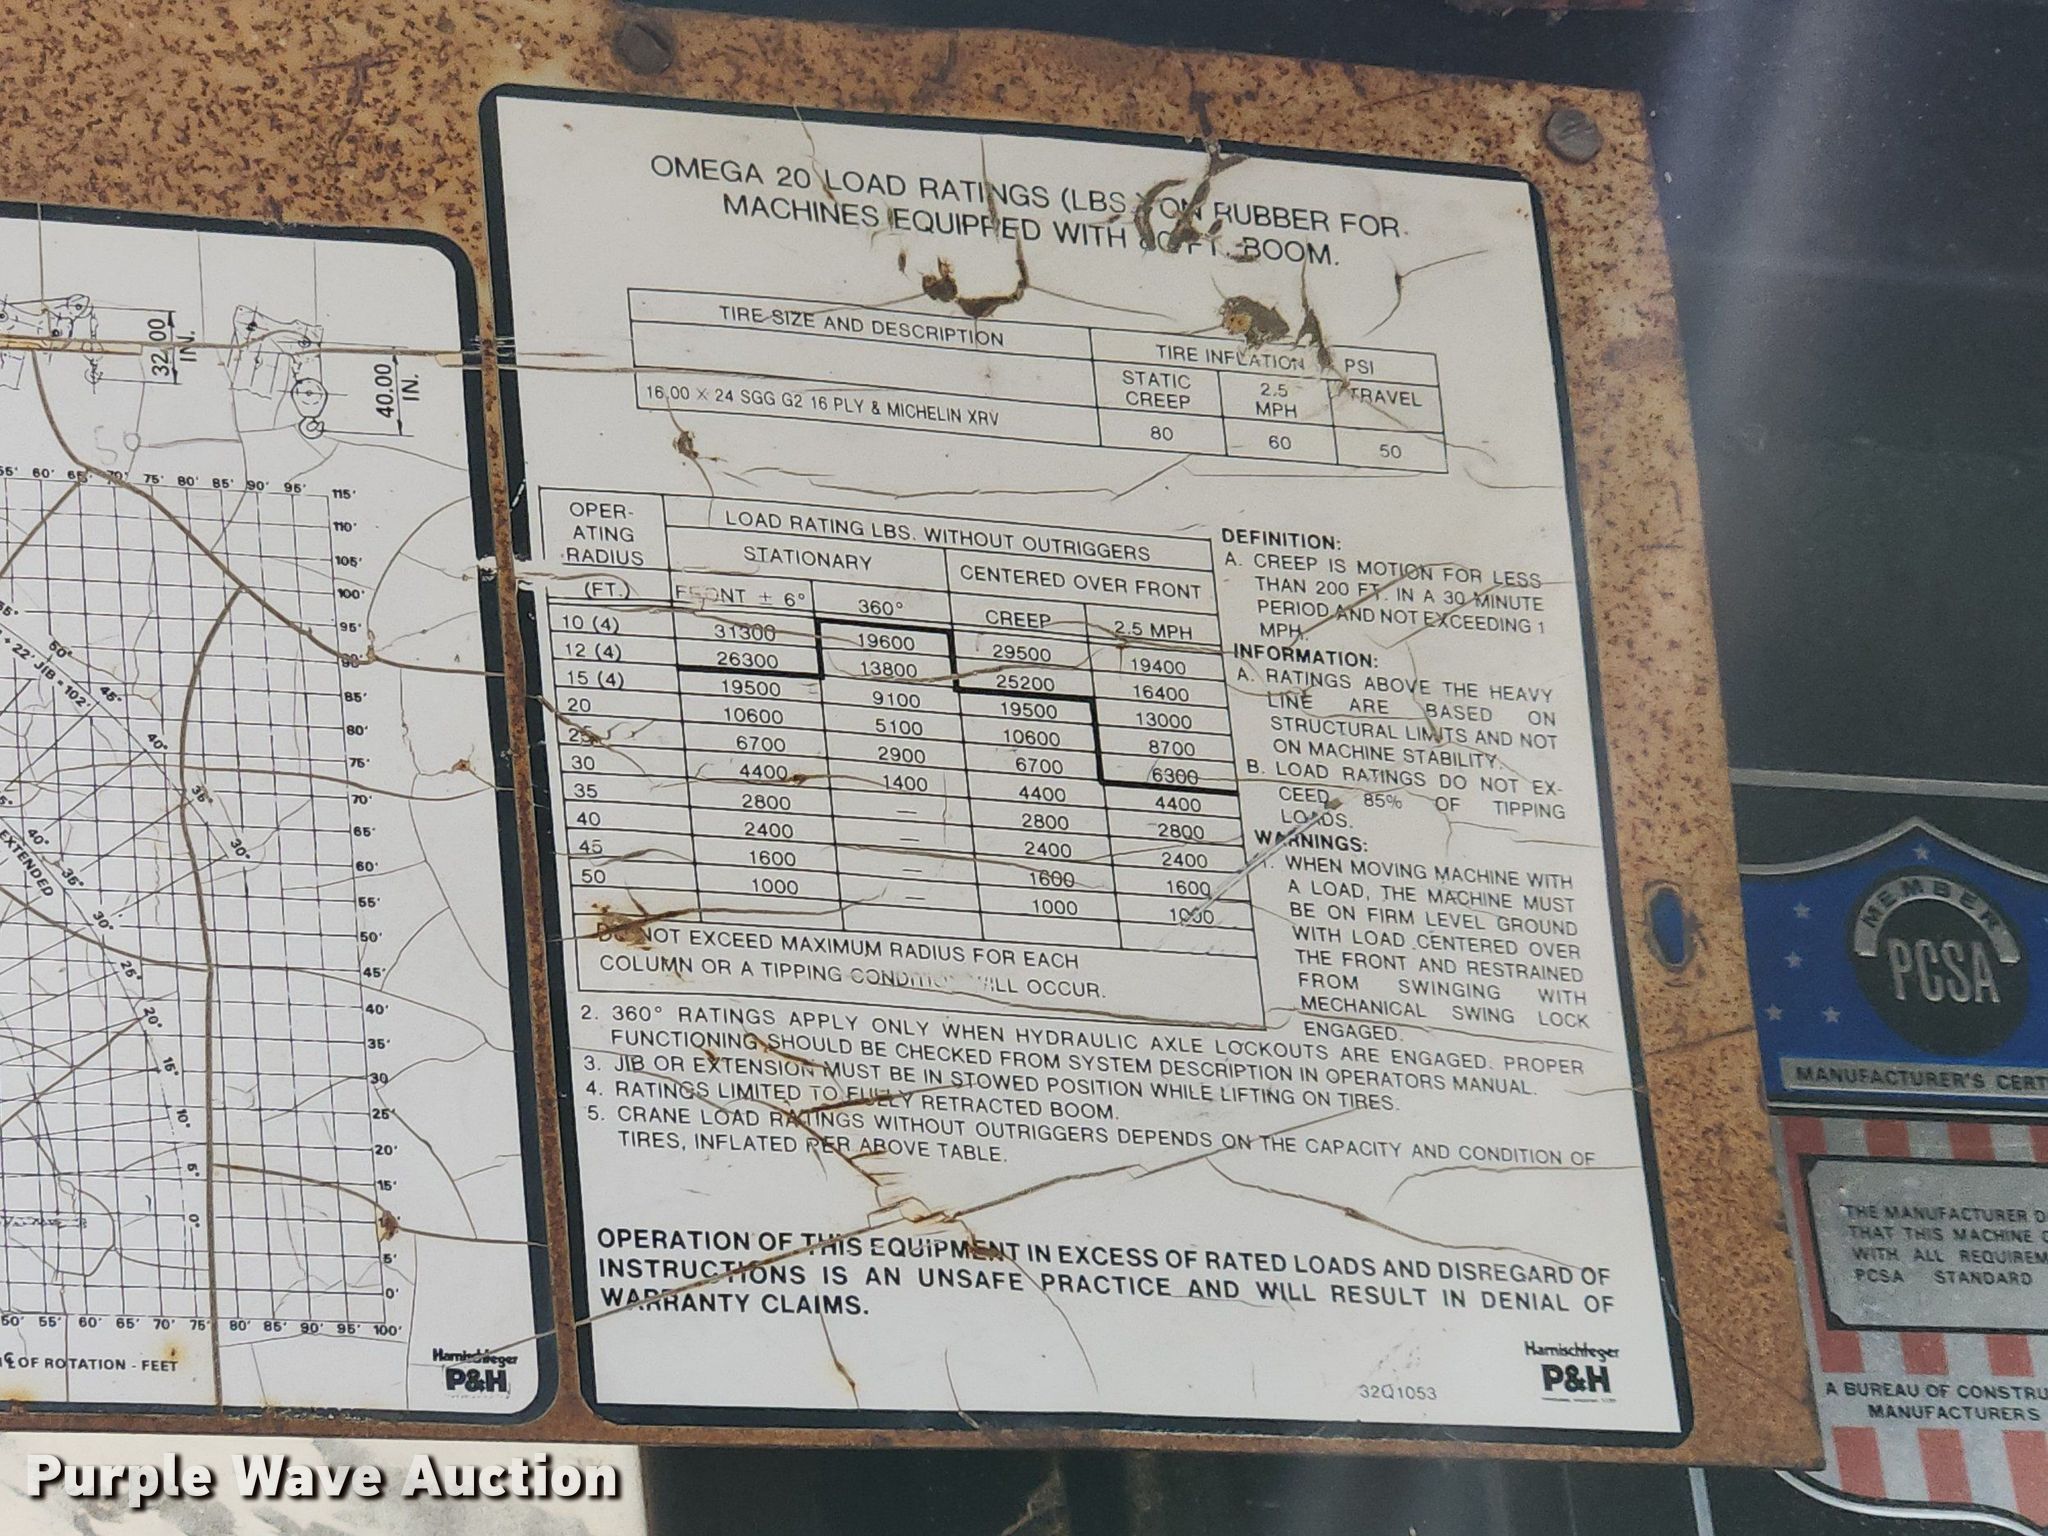 32.00
IN.
40.00
IN.
55' 60' 65' 70' 75' 80' 85' 90' 95' 115'
110'
105'
100'
95'
90'
85'
80'
75'
70'
65'
60'
55'
50'
45'
40'
35'
30'
25'
20'
15'
5'
0'
+ 22' JIB = 102'
50°
45°
40°
35°
30°
EXTENDED
40°
35°
30°
25°
20°
15°
10°
5°
0°
50' 55' 60' 65' 70' 75' 80' 85' 90' 95' 100'
OF ROTATION - FEET
Harnischfeger
P&H
OMEGA 20 LOAD RATINGS (LBS.) ON RUBBER FOR
MACHINES EQUIPPED WITH FT. BOOM.
TIRE SIZE AND DESCRIPTION TIRE INFLATION PSI
STATIC CREEP 2.5 MPH TRAVEL
16.00 X 24 SGG G2 16 PLY & MICHELIN XRV 80 60 50
OPER-
ATING
RADIUS
(FT.)
LOAD RATING LBS. WITHOUT OUTRIGGERS
STATIONARY CENTERED OVER FRONT
FRONT ± 6° 360° CREEP 2.5 MPH
10 (4) 31300 19600 29500 19400
12 (4) 26300 13800 25200 16400
15 (4) 19500 9100 19500 13000
20 10600 5100 10600 8700
25 6700 2900 6700 6300
30 4400 1400 4400 4400
35 2800 — 2800 2800
40 2400 — 2400 2400
45 1600 — 1600 1600
50 1000 — 1000 1000
DO NOT EXCEED MAXIMUM RADIUS FOR EACH
COLUMN OR A TIPPING CONDITION WILL OCCUR.
DEFINITION:
A. CREEP IS MOTION FOR LESS
THAN 200 FT. IN A 30 MINUTE
PERIOD AND NOT EXCEEDING 1
MPH.
INFORMATION:
A. RATINGS ABOVE THE HEAVY
LINE ARE BASED ON
STRUCTURAL LIMITS AND NOT
ON MACHINE STABILITY.
B. LOAD RATINGS DO NOT EX-
CEED 85% OF TIPPING
LOADS.
WARNINGS:
1. WHEN MOVING MACHINE WITH
A LOAD, THE MACHINE MUST
BE ON FIRM LEVEL GROUND
WITH LOAD CENTERED OVER
THE FRONT AND RESTRAINED
FROM SWINGING WITH
MECHANICAL SWING LOCK
ENGAGED.
2. 360° RATINGS APPLY ONLY WHEN HYDRAULIC AXLE LOCKOUTS ARE ENGAGED. PROPER
FUNCTIONING SHOULD BE CHECKED FROM SYSTEM DESCRIPTION IN OPERATORS MANUAL.
3. JIB OR EXTENSION MUST BE IN STOWED POSITION WHILE LIFTING ON TIRES.
4. RATINGS LIMITED TO FULLY RETRACTED BOOM.
5. CRANE LOAD RATINGS WITHOUT OUTRIGGERS DEPENDS ON THE CAPACITY AND CONDITION OF
TIRES, INFLATED PER ABOVE TABLE.
OPERATION OF THIS EQUIPMENT IN EXCESS OF RATED LOADS AND DISREGARD OF
INSTRUCTIONS IS AN UNSAFE PRACTICE AND WILL RESULT IN DENIAL OF
WARRANTY CLAIMS.
32Q1053
Harnischfeger
P&H
MEMBER
PCSA
MANUFACTURER'S CERT
THE MANUFACTURER
THAT THIS MACHINE
WITH ALL REQUIREM
PCSA STANDARD
A BUREAU OF CONSTRU
MANUFACTURERS
Purple Wave Auction